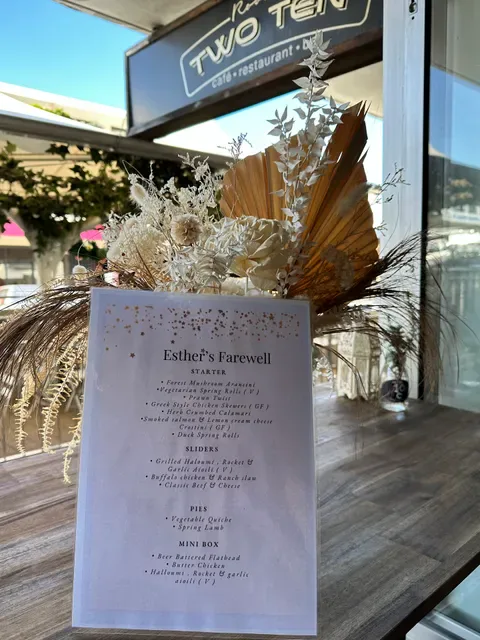 TWO TEN
café • restaurant • b
Esther's Farewell
STARTER
• Forest Mushroom Arancini
• Vegetarian Spring Rolls ( V )
• Prawn Twist
• Greek Style Chicken Skewers ( GF )
• Herb Crumbed Calamari
•Smoked salmon & Lemon cream cheese
Crostini ( GF )
• Duck Spring Rolls
SLIDERS
• Grilled Haloumi , Rocket &
Garlic Aioili ( V )
• Buffalo chicken & Ranch slaw
• Classic Beef & Cheese
PIES
• Vegetable Quiche
• Spring Lamb
MINI BOX
• Beer Battered Flathead
• Butter Chicken
• Halloumi , Rocket & garlic
aioili ( V )